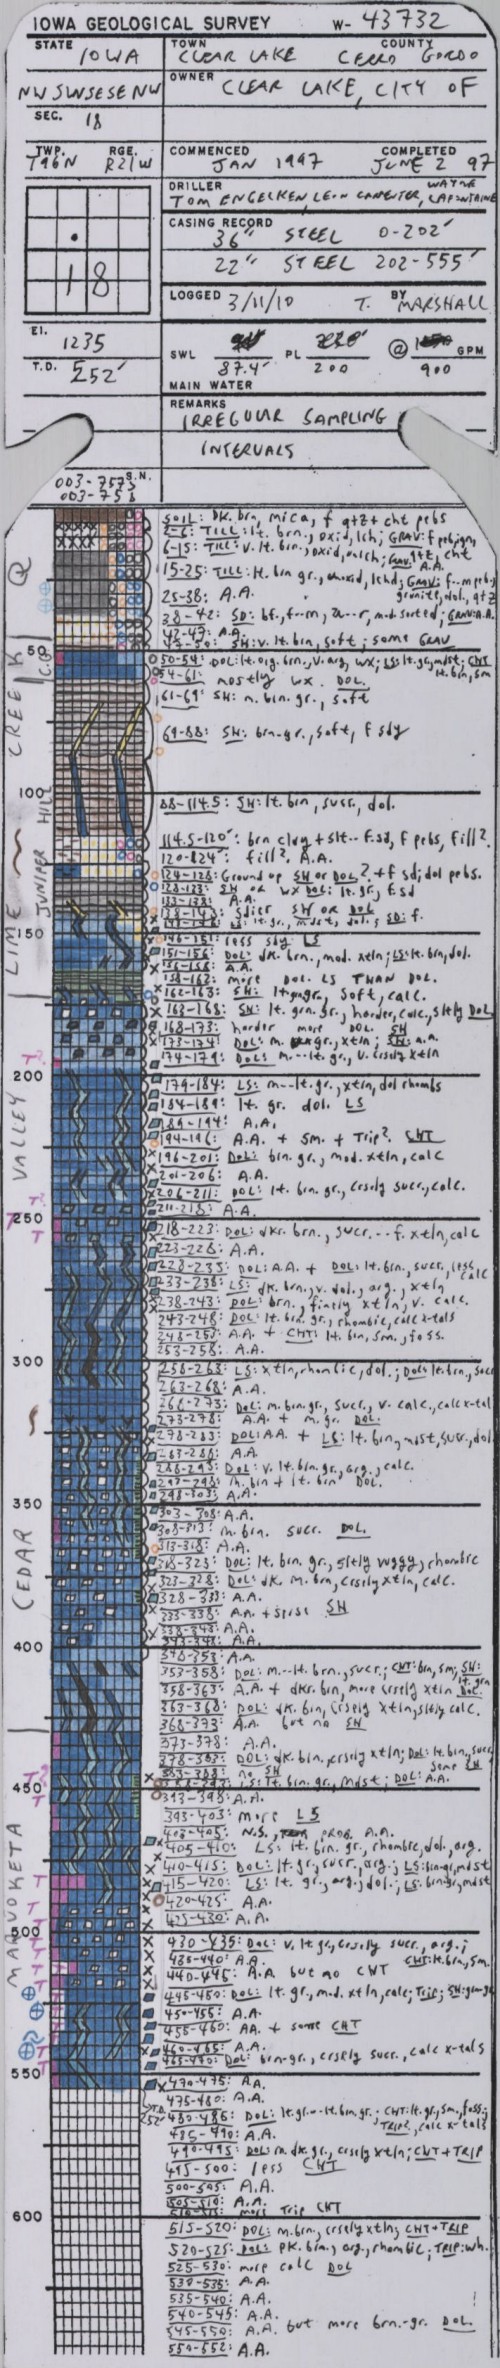 IOWA GEOLOGICAL SURVEY W- 43732
STATE IOWA TOWN CLEAR LAKE COUNTY CERRO GORDO
NW SW SE SE NW OWNER CLEAR LAKE, CITY OF
SEC. 18
TWP. T96N RGE. R21W COMMENCED JAN 1997 COMPLETED JUNE 2 97
DRILLER TOM ENGELKEN, LEON CARPENTER, WAYNE LAFONTAINE
CASING RECORD
36" STEEL 0-202'
22" STEEL 202-555'
18
LOGGED 3/11/10 BY T. MARSHALL
El. 1235
T.D. 552'
SWL 87.4' PL 200 @ 900 GPM
MAIN WATER
REMARKS
IRREGULAR SAMPLING
INTERVALS
S.N.
Q
LIME CREEK
C.G.
JUNIPER HILL
CEDAR VALLEY
MAQUOKETA
50
100
150
200
250
300
350
400
450
500
550
600
SOIL: DK. brn, mica, f qtz + cht pebs
15-25: TILL: lt. brn gr.
25-38: A.A.
42-47: A.A.
47-50: SH: v. lt. brn, soft; some GRAV
54-61: mostly wx. DOL.
61-69: SH: m. brn. gr., soft
69-88: SH: brn-gr., soft, f sdy
88-114.5: SH: lt. brn, sucr., dol.
114.5-120': brn clay + slt-- f. sd, f pebs, fill?
fill?, A.A.
A.A.
146-151: less sdy LS
151-156: DOL: dk. brn., mod. xtln; LS: lt. brn, dol.
156-158: A.A.
158-162: more DOL. LS THAN DOL.
162-163: SH: lt. grn gr., soft, calc.
163-168: SH: lt. grn. gr., harder, calc., sltly DOL
168-173: harder more DOL. SH
174-179: DOL: m.--lt. gr., v. crsely xtln
179-184: LS: m--lt. gr., xtln, dol rhombs
184-189: lt. gr. dol. LS
189-194: A.A.
194-196: A.A. + sm. + Trip? CHT
196-201: DOL: brn. gr., mod. xtln, calc
201-206: A.A.
206-211: DOL: lt. brn. gr., crsely sucr., calc.
211-218: A.A.
218-223: DOL: dkr. brn., sucr.-- f. xtln, calc
223-228: A.A.
228-233: DOL: A.A. + DOL: lt. brn., sucr., less calc
233-238: LS: dk. brn., v. dol., arg., xtln
238-243: DOL: brn., finely xtln, v. calc.
243-248: DOL: lt. brn. gr., rhombic, calc x-tals
248-253: A.A. + CHT: lt. brn, sm., foss.
253-258: A.A.
258-263: LS: xtln, rhombic, dol.; DOL: lt. brn., sucr
263-268: A.A.
268-273: DOL: m. brn. gr., sucr., v. calc., calc x-tal
273-278: A.A. + m. gr. DOL.
278-283: DOL: A.A. + LS: lt. brn, mdst, sucr., dol
283-288: A.A.
288-293: DOL: v. lt. brn. gr., arg., calc.
293-298: m. brn + lt. brn DOL.
298-303: A.A.
303-308: A.A.
308-313: m. brn. sucr. DOL.
313-318: A.A.
318-323: DOL: lt. brn. gr., sltly vuggy, rhombic
323-328: DOL: dk m. brn, crsely xtln, calc.
328-333: A.A.
333-338: A.A. + sparse SH
338-343: A.A.
343-348: A.A.
348-353: A.A.
353-358: DOL: m.--lt. brn., sucr.; CHT: brn, sm; SH: lt. grn
358-363: A.A. + dkr. brn, more crsely xtln DOL.
363-368: DOL: dk. brn, crsely xtln, sltly calc.
368-373: A.A. but no SH
373-378: A.A.
378-383: DOL: dk. brn, crsely xtln; DOL: lt. brn, sucr some SH
383-388: no SH
388-393: LS: lt. brn. gr., mdst; DOL: A.A.
393-398: A.A.
393-403: more LS
403-405: N.S., PROB. A.A.
405-410: LS: lt. brn. gr., rhombic, dol., arg.
410-415: DOL: lt. gr., sucr., arg.; LS: brn-gr, mdst
415-420: LS: lt. gr., arg.; dol.; LS: brn-gr, mdst
420-425: A.A.
425-430: A.A.
430-435: DOL: v. lt. gr., crsely sucr., arg.; CHT: lt. brn, sm.
435-440: A.A.
440-445: A.A. but no CHT
445-450: DOL: lt. gr., mod. xtln, calc; Trip; SH: grn-gr
450-455: A.A.
455-460: AA. + some CHT
460-465: A.A.
465-470: DOL: brn-gr., crsely sucr., calc x-tals
470-475: A.A.
475-480: A.A.
480-485: DOL: lt. gr.--lt. brn. gr.; CHT: lt. gr., sm., foss; TRIP?, calc x-tals
485-490: A.A.
490-495: DOL: m. dk. gr., crsely xtln; CHT + TRIP
495-500: less CHT
500-505: A.A.
505-510: A.A.
510-515: more Trip CHT
515-520: DOL: m. brn., crsely xtln; CHT + TRIP
520-525: DOL: pk. brn., arg., rhombic; TRIP: wh.
525-530: more calc DOL
530-535: A.A.
535-540: A.A.
540-545: A.A.
545-550: A.A. but more brn.-gr. DOL.
550-552: A.A.